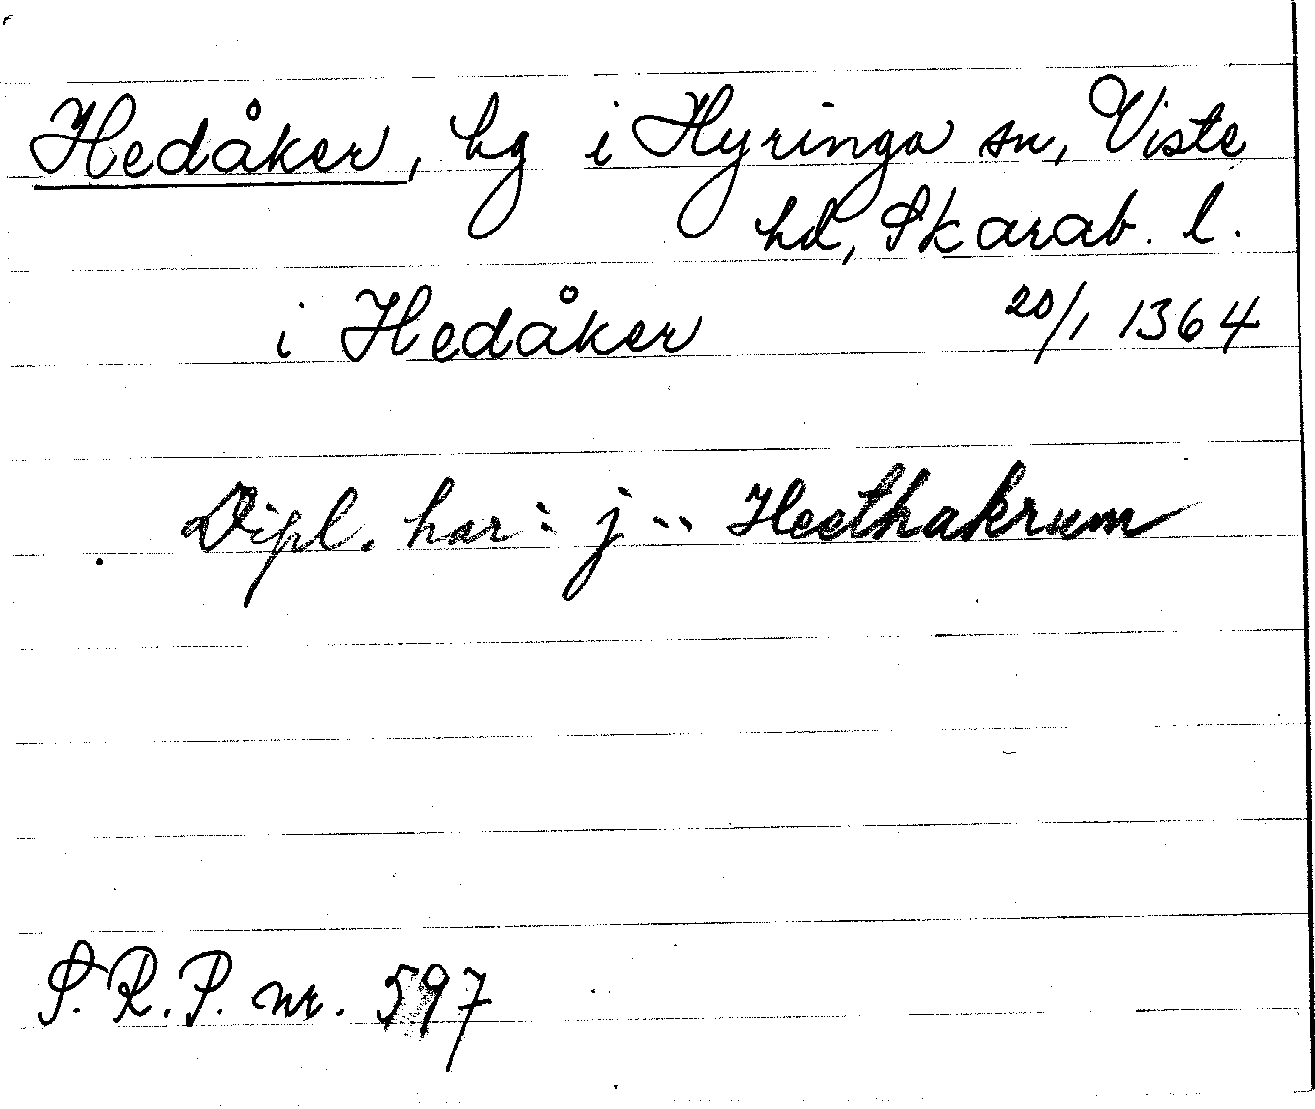 Hedåker, hg i Hyringa sn, Viste
hd, Skarab. l.
i Hedåker 20/1 1364
Dipl. har: j -- Heethakrum
S.R.P. nr. 597